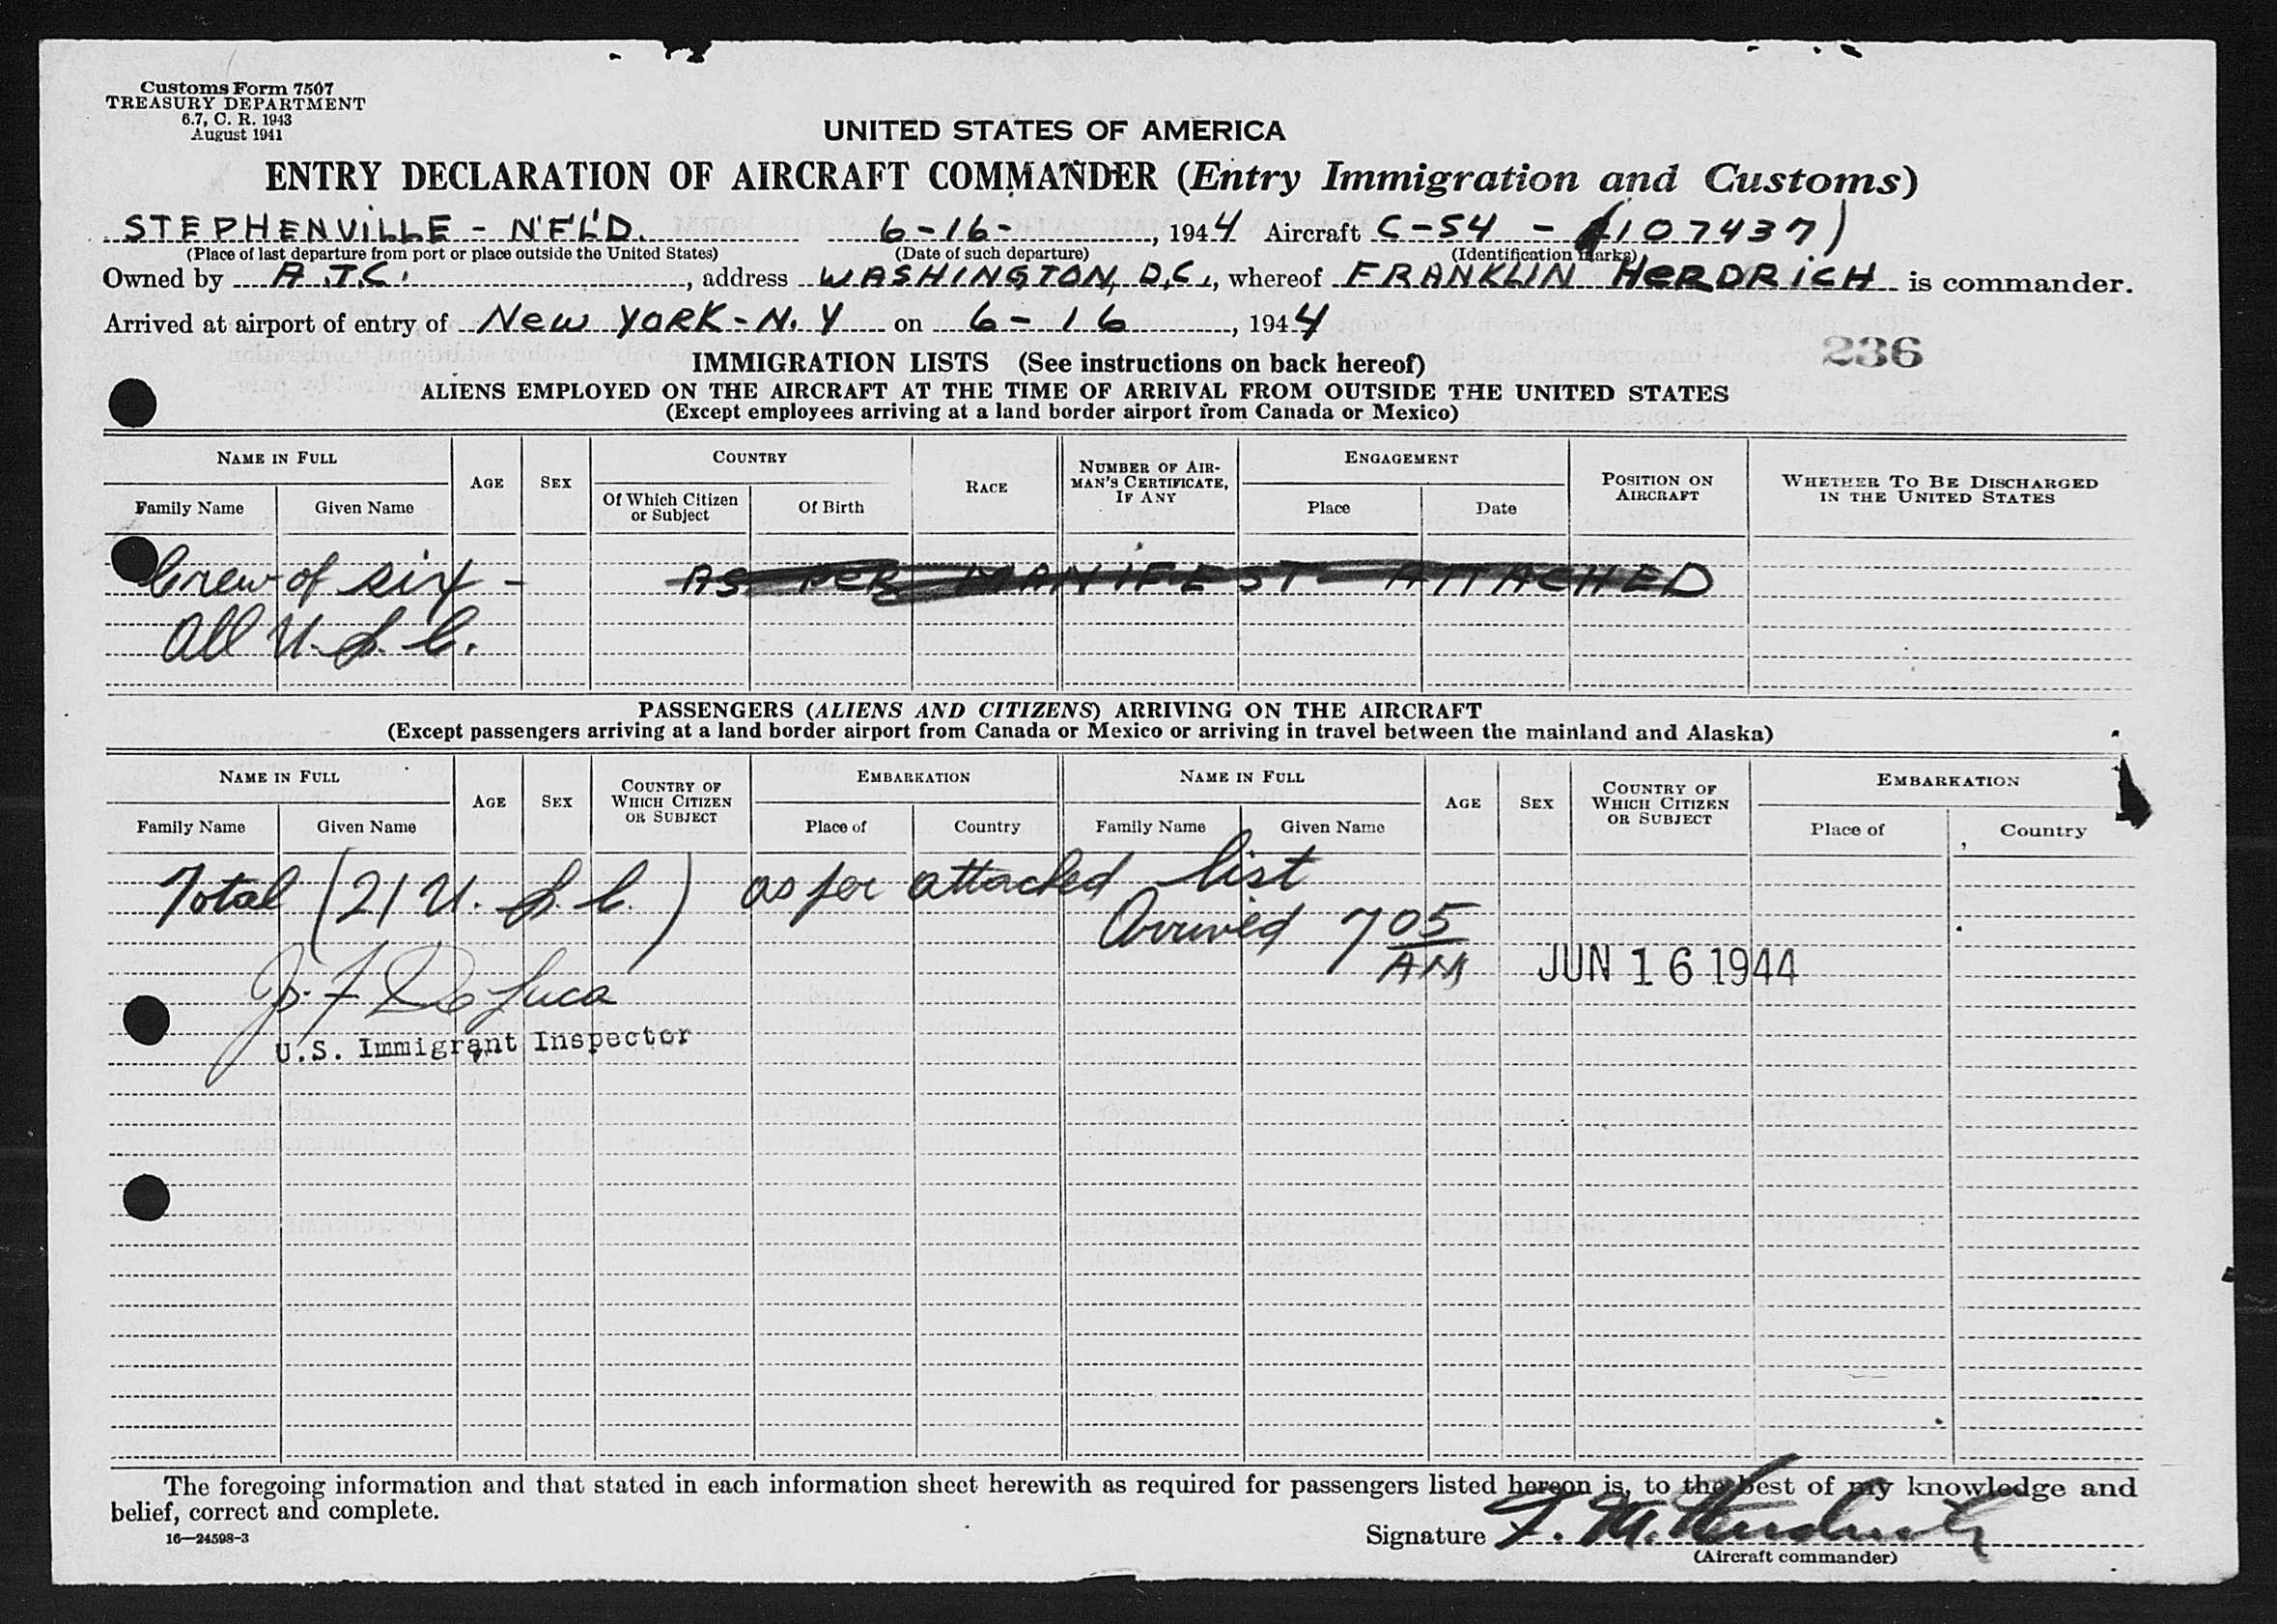 Customs Form 7507
TREASURY DEPARTMENT
6.7, C. R. 1943
August 1941
UNITED STATES OF AMERICA
ENTRY DECLARATION OF AIRCRAFT COMMANDER (Entry Immigration and Customs)
STEPHENVILLE - N'F'L'D. 6-16-, 1944 Aircraft C-54 - (107437)
(Place of last departure from port or place outside the United States) (Date of such departure) (Identification marks)
Owned by A.T.C., address WASHINGTON, D.C., whereof FRANKLIN HERDRICH is commander.
Arrived at airport of entry of New YORK - N.Y on 6-16, 1944
236
IMMIGRATION LISTS (See instructions on back hereof)
ALIENS EMPLOYED ON THE AIRCRAFT AT THE TIME OF ARRIVAL FROM OUTSIDE THE UNITED STATES
(Except employees arriving at a land border airport from Canada or Mexico)
NAME IN FULL AGE SEX COUNTRY RACE NUMBER OF AIRMAN'S CERTIFICATE, IF ANY ENGAGEMENT POSITION ON AIRCRAFT WHETHER TO BE DISCHARGED IN THE UNITED STATES
Family Name Given Name Of Which Citizen or Subject Of Birth Place Date
Crew of six - AS PER MANIFEST ATTACHED
All U.S.C.
PASSENGERS (ALIENS AND CITIZENS) ARRIVING ON THE AIRCRAFT
(Except passengers arriving at a land border airport from Canada or Mexico or arriving in travel between the mainland and Alaska)
NAME IN FULL AGE SEX COUNTRY OF WHICH CITIZEN OR SUBJECT EMBARKATION NAME IN FULL AGE SEX COUNTRY OF WHICH CITIZEN OR SUBJECT EMBARKATION
Family Name Given Name Place of Country Family Name Given Name Place of Country
Total (21 U.S.C.) as per attached list
Arrived 7 05 AM
JUN 16 1944
J. F. De Luca
U.S. Immigrant Inspector
The foregoing information and that stated in each information sheet herewith as required for passengers listed hereon is, to the best of my knowledge and
belief, correct and complete.
16—24598-3
Signature F. M. Herdrich
(Aircraft commander)